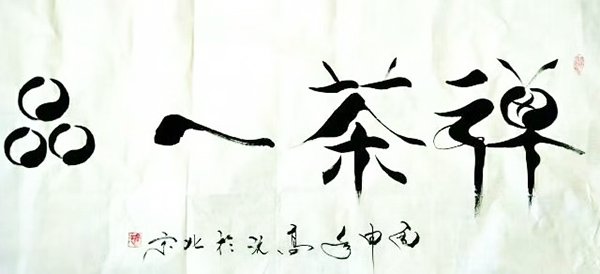 禅茶一品
丙申年高於北京